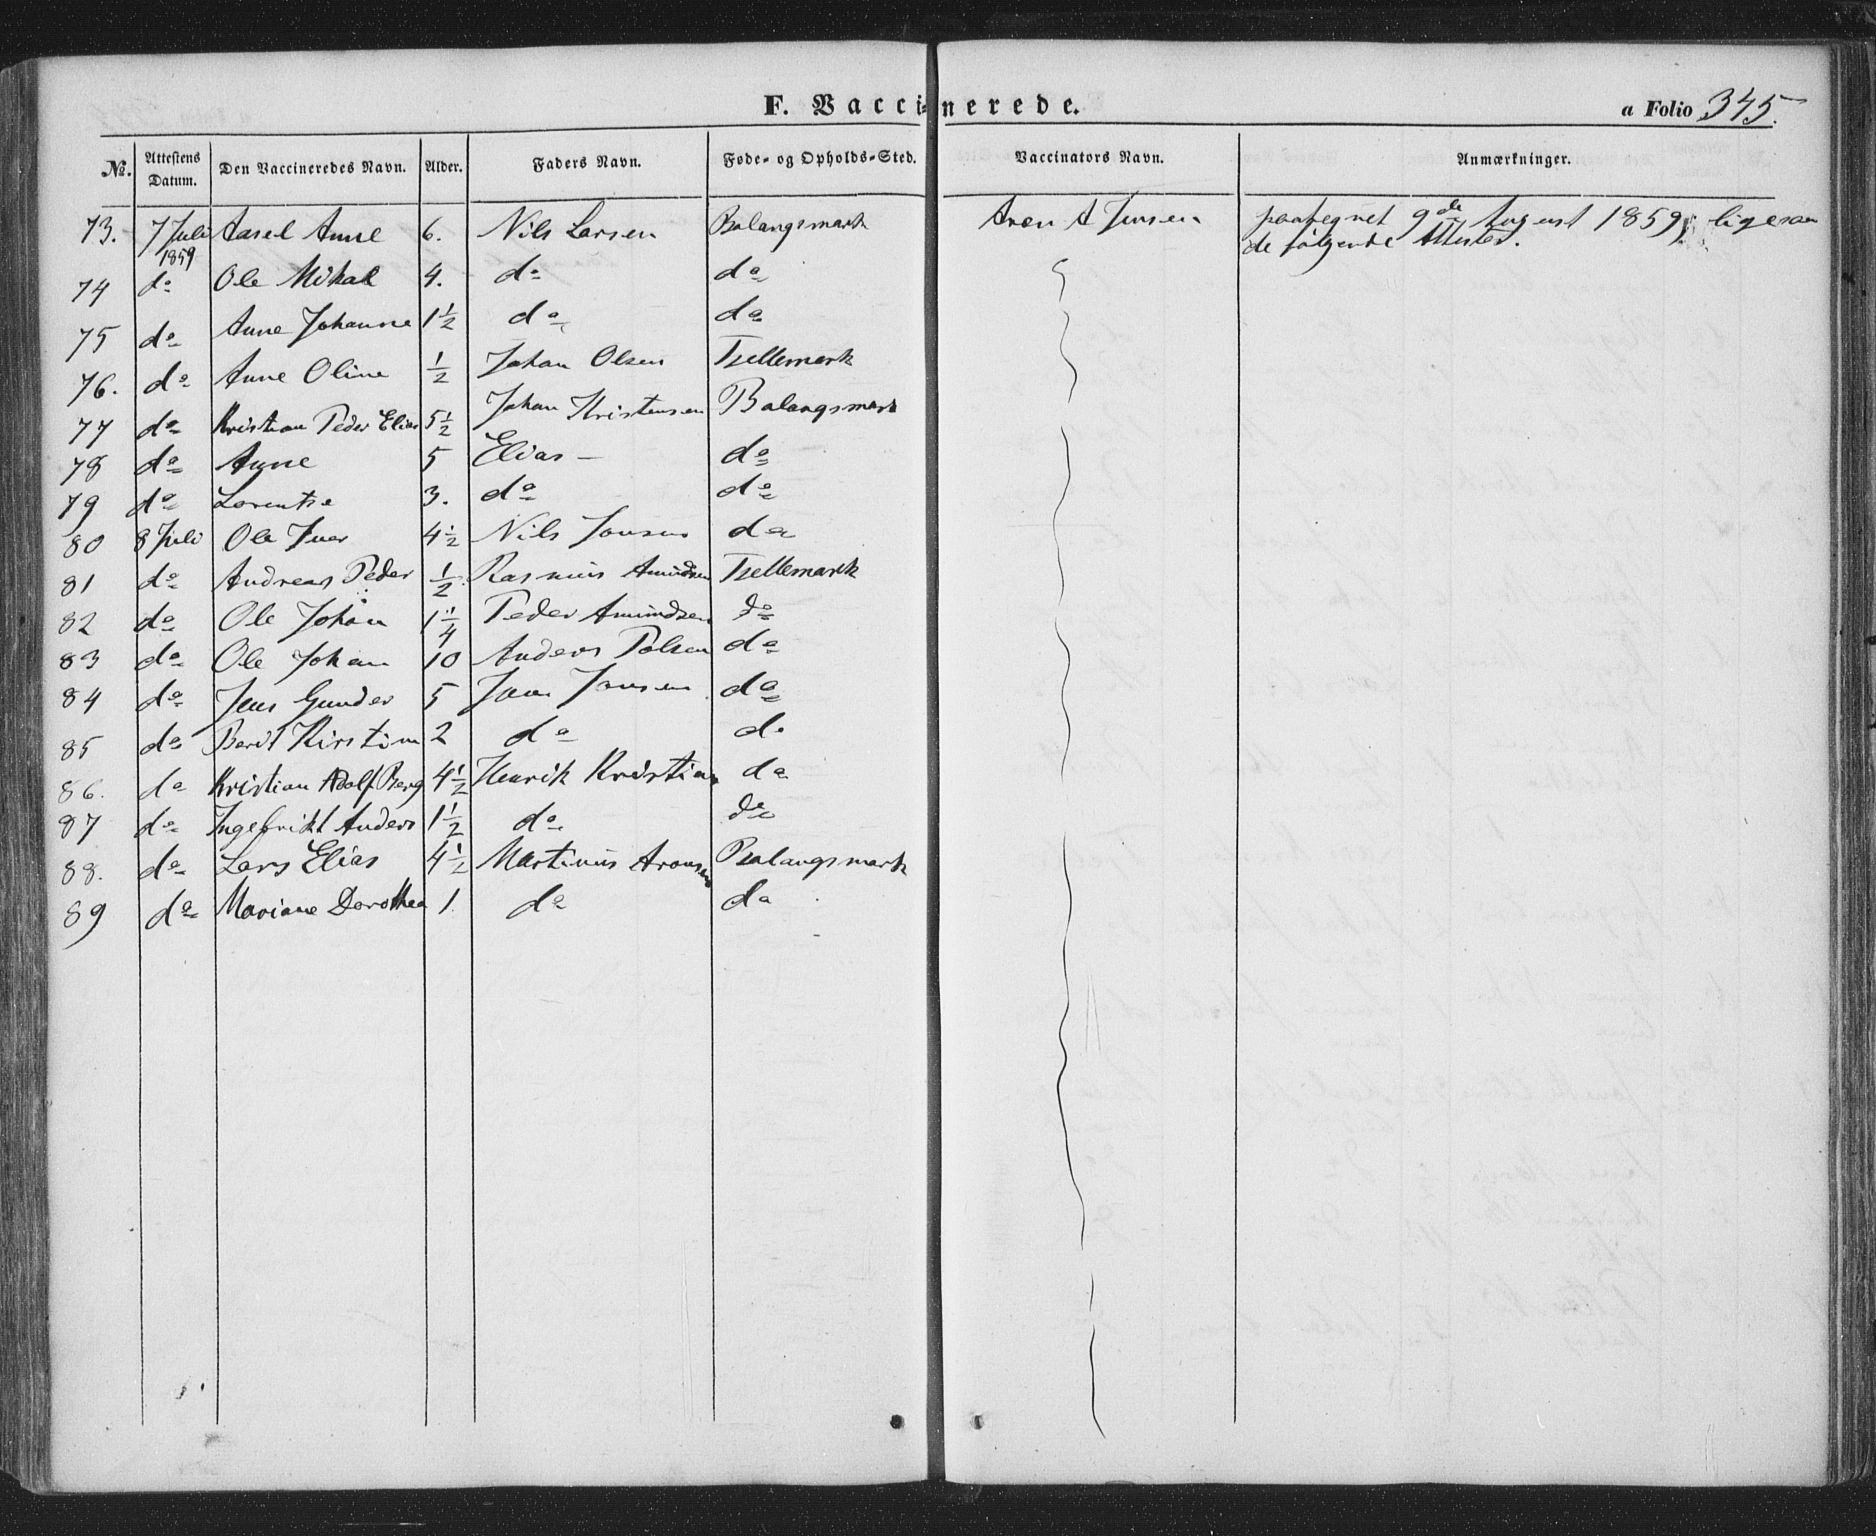 F. Vaccinerede.
a Folio 345.
No. Attestens Datum. Den Vaccineredes Navn. Alder. Faders Navn. Føde- og Opholds-Sted. Vaccinators Navn. Anmærkninger.
73. 7 Juli 1859 Aasel Anne 6. Nils Larsen Balangsmark Aron A Jensen paategnet 9de August 1859, ligesaa
de følgende Attester.
74 do Ole Mikal 4. do do
75 do Anne Johanne 1 1/2 do do
76. do Anne Oline 1/2 Johan Olsen Tsellemark
77 do Kristian Peder Elias 5 1/2 Johan Kristensen Balangsmark
78 do Anne 5 Elias – do
79 do Lorentse 3. do do
80 8 Juli Ole Iver 4 1/2 Nils Jonsen do
81 do Andreas Peder 1/2 Rasmus Amundsen Tsellemark
82 do Ole Johan 1 1/4 Peder Amundsen do
83 do Ole Johan 10 Anders Polsen do
84 do Jens Gunder 5 Jon Jonsen do
85 do Berit Kirstine 2 do do
86. do Kristian Adolf Berg 4 1/2 Henrik Kristian do
87 do Ingebrikt Anders 1 1/2 do do
88. do Lars Elias 4 1/2 Martinus Aronsen Balangsmark
89 do Mariane Dorothea 1. do do